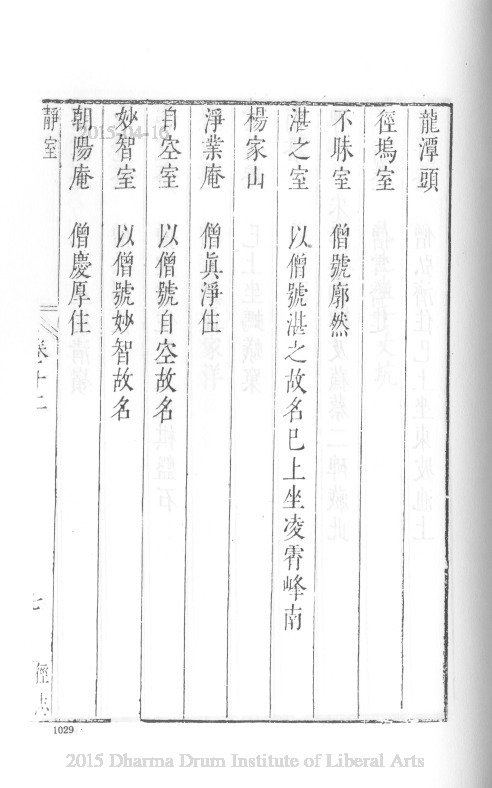 龍潭頭
徑塢室
不昧室　僧號廓然
湛之室　以僧號湛之故名已上坐凌霄峰南
楊家山
淨業庵　僧眞淨住
自空室　以僧號自空故名
妙智室　以僧號妙智故名
朝陽庵　僧慶厚住
靜室
卷十二
七
徑志
1029
2015-04-10
2015 Dharma Drum Institute of Liberal Arts